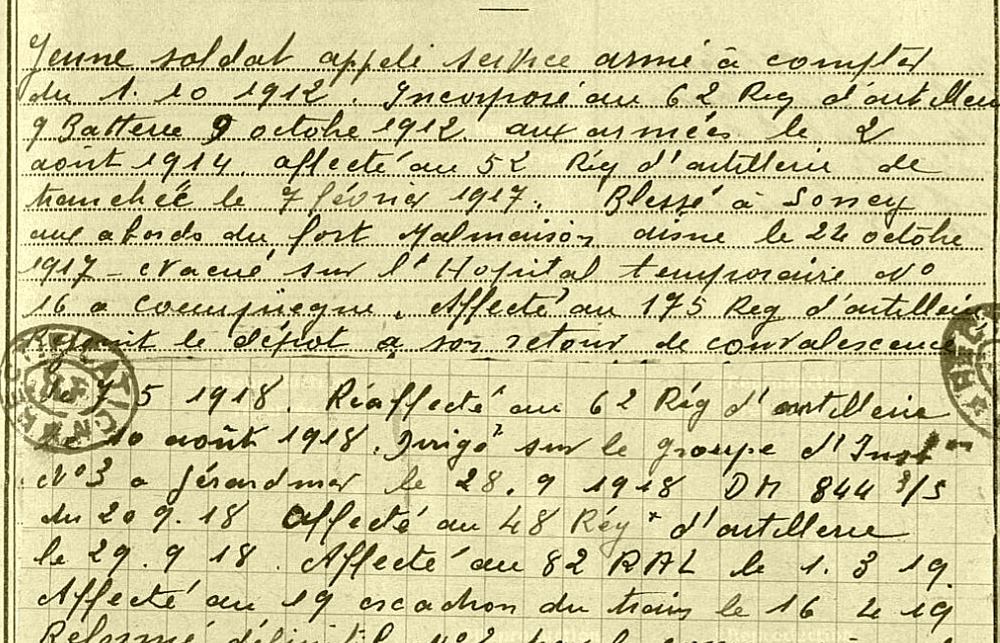 Jeune soldat appelé service armé à compter
du 1. 10 1912. Incorporé au 62 Reg d'artillerie
9 Batterie 9 octobre 1912. aux armées le 2
août 1914. affecté au 52 Rég d'artillerie de
tranchée le 7 février 1917. Blessé à
aux abords du fort Malmaison aisne le 22 octobre
1917 - evacué sur l'Hopital temporaire No
16 a Compiegne. Affecté au 175 Reg d'artillerie
Rejoint le dépot a son retour de convalescence
le 7 5 1918. Réaffecté au 62 Rég d'artillerie
le 10 août 1918. Dirigé sur le groupe d'Inst
No 3 a Gérardmer le 28. 9 1918 DM 844 3/5
du 20 9. 18 Affecté au 48 Rég d'artillerie
le 29. 9 18. Affecté au 82 RAL le 1. 3 19.
Affecté au 19 escadron du train le 16 4 19
Reformé